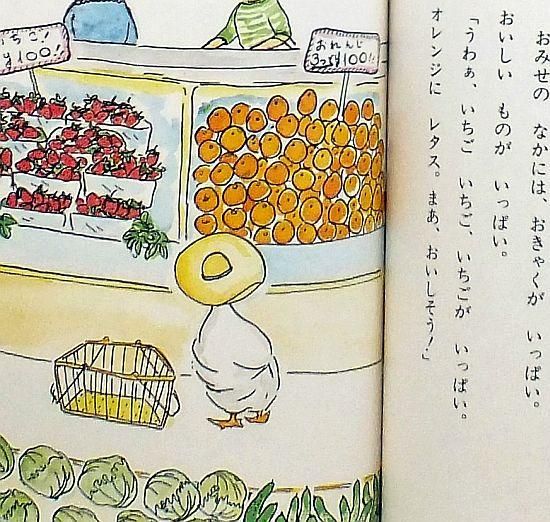 いちご!
¥100!
おれんじ
3つ¥100!!
おみせの なかには、おきゃくが いっぱい。
おいしい ものが いっぱい。
「うわぁ、いちご いちご、いちごが いっぱい。
オレンジに レタス。まあ、おいしそう!」